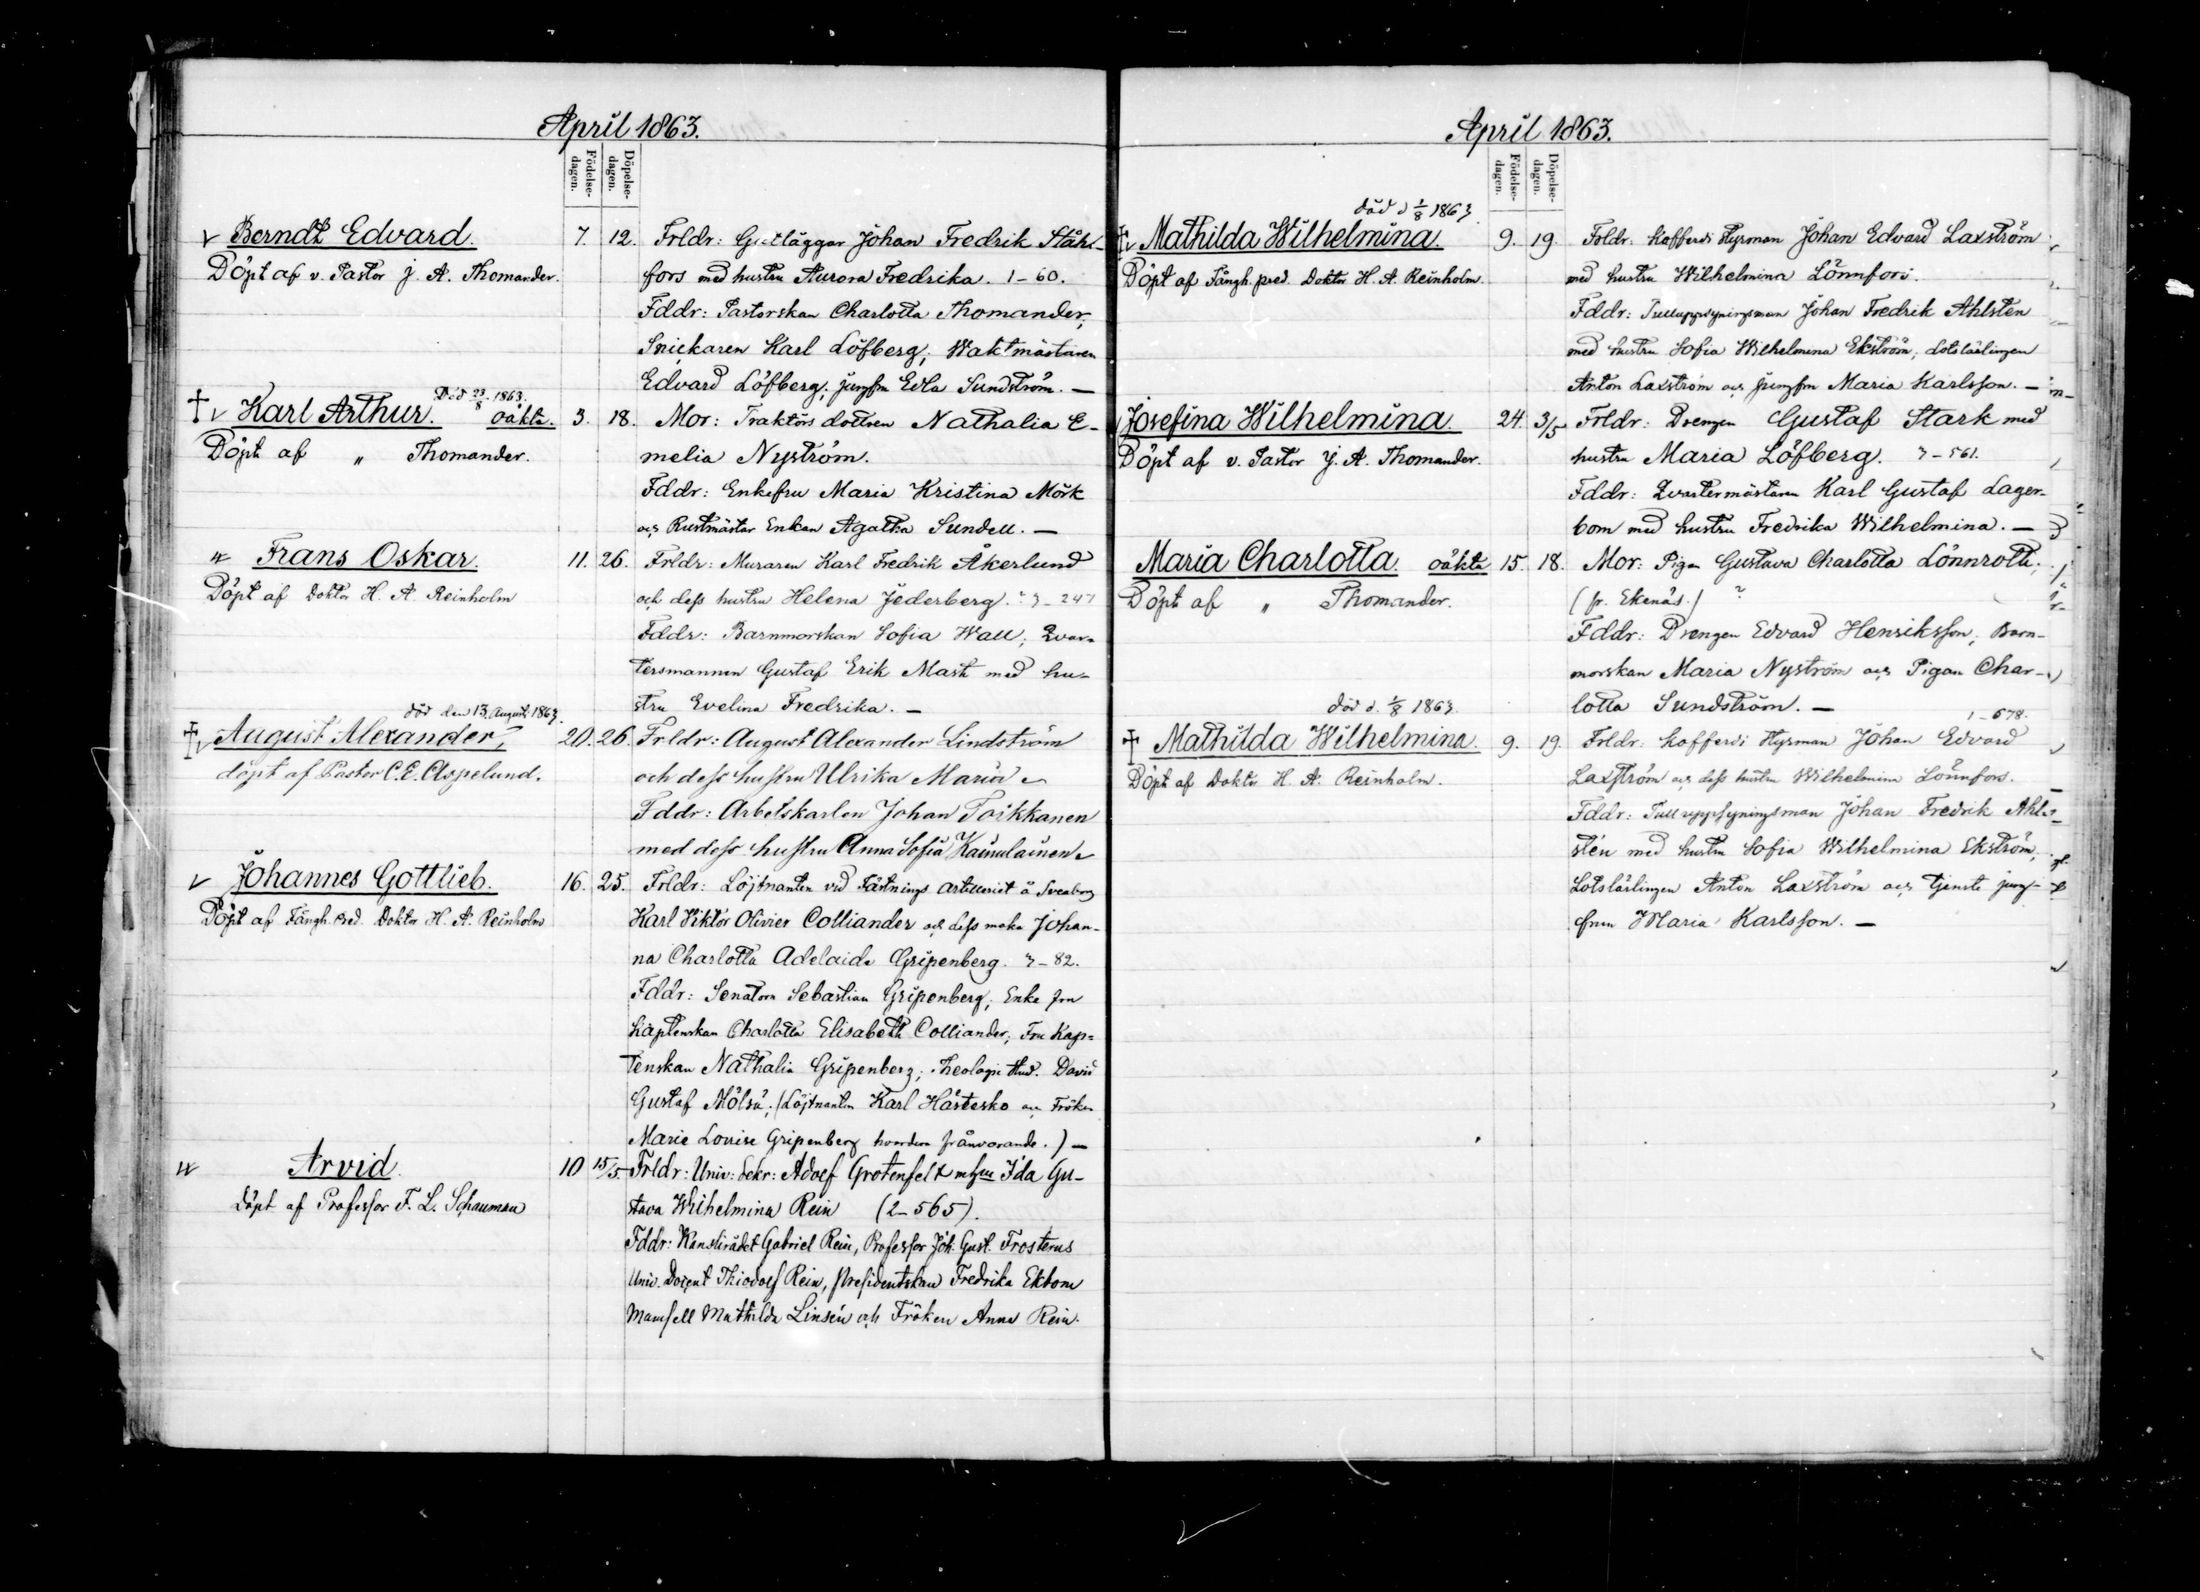 April 1863.
Födelse-
dagen.
Döpelse-
dagen.
Berndt Edvard. 7. 12. Frldr: Johan Fredrik Ståhl-
Döpt af v. Pastor J. A. Thomander. fors med hustru Aurora Fredrika. 1-60.
Fddr: Pastorskan Charlotta Thomander,
Snickaren Karl Löfberg, Waktmästaren
Edvard Löfberg, jungfru Edla Sundström. —
Död 23/8 1863.
† Karl Arthur. oäkta. 3. 18. Mor: Traktörs dottren Nathalia E-
Döpt af " Thomander. melia Nyström.
Fddr: Enkefru Maria Kristina Mörk
och Rustmästar Enkan Agatha Sundell. —
Frans Oskar. 11. 26. Frldr: Muraren Karl Fredrik Åkerlund
Döpt af Doktor H. A. Reinholm och dess hustru Helena Jederberg. 3-247
Fddr: Barnmorskan Sofia Wall, Qvar-
termannen Gustaf Erik Mast med hu-
stru Evelina Fredrika. —
död den 13. August 1863.
† August Alexander, 20. 26. Frldr: August Alexander Lindström
döpt af Pastor C. E. Aspelund. och dess hustru Ulrika Maria
Fddr: Arbetskarlen Johan Toikkanen
med dess hustru Anna Sofia Kainulainen
Johannes Gottlieb. 16. 25. Frldr: Löjtnanten vid Fästnings artilleriet å Sveaborg
Döpt af Fångh. pred. Doktor H. A. Reinholm Karl Viktor Olivier Colliander och dess maka Johan-
na Charlotta Adelaide Gripenberg. 3-82.
Fddr: Senatorn Sebastian Gripenberg, Enke fru
Kaptenskan Charlotta Elisabeth Colliander, Fru Kap-
tenskan Nathalia Gripenberg, Theologie stud. David
Gustaf Mölsä, (Löjtnanten Karl Hästesko och Fröken
Marie Louise Gripenberg frånvarande.) —
Arvid. 10 15/5. Frldr: Univ: Sekr: Adolf Grotenfelt Ida Gu-
Döpt af Professor F. L. Schauman stava Wilhelmina Rein (2-565).
Fddr: Kanslirådet Gabriel Rein, Professor Joh. Gust. Frosterus
Univ. Docent Thiodolf Rein, Presidentskan Fredrika Ekbom
Mamsell Mathilda Linsén och Fröken Anna Rein.
April 1863.
Födelse-
dagen.
Döpelse-
dagen.
död d 1/8 1863
† Mathilda Wilhelmina. 9. 19. Frldr: Kofferdi Styrman Johan Edvard Laxström
Döpt af Fångh. pred. Doktor H. A. Reinholm. med hustru Wilhelmina Lönnfors.
Fddr: Tulluppsyningsman Johan Fredrik Ahlsten
med hustru Sofia Wilhelmina Ekström, Lotslärlingen
Anton Laxström och jungfru Maria Karlsson. —
Josefina Wilhelmina. 24. 3/5 Frldr: Drengen Gustaf Stark med
Döpt af v. Pastor J. A. Thomander. hustru Maria Löfberg. 3-561.
Fddr: Qvartermästaren Karl Gustaf Lager-
bom med hustru Fredrika Wilhelmina. —
Maria Charlotta. oäkta 15. 18. Mor: Pigan Gustava Charlotta Lönnroth,
Döpt af " Thomander. (fr. Ekenäs.) ?
Fddr: Drengen Edvard Henriksson, Barn-
morskan Maria Nyström och Pigan Char-
lotta Sundström. —
död d. 1/8 1863. 1-678.
† Mathilda Wilhelmina. 9. 19. Frldr: Kofferdi Styrman Johan Edvard
Döpt af Doktor H. A. Reinholm. Laxström och dess hustru Wilhelmina Lönnfors.
Fddr: Tulluppsyningsman Johan Fredrik Ahl-
stén med hustru Sofia Wilhelmina Ekström,
Lotslärlingen Anton Laxström och tjenste jung-
frun Maria Karlsson. —